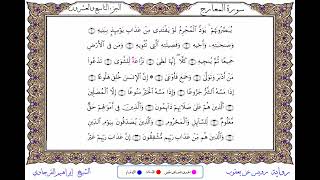 سورة المعارج الجزء التاسع والعشرون
يُبَصَّرُونَهُمْ يَوَدُّ الْمُجْرِمُ لَوْ يَفْتَدِي مِنْ عَذَابِ يَوْمِئِذٍ بِبَنِيهِ
وَصَاحِبَتِهِ وَأَخِيهِ وَفَصِيلَتِهِ الَّتِي تُؤْوِيهِ وَمَن فِي الْأَرْضِ
جَمِيعًا ثُمَّ يُنجِيهِ كَلَّا إِنَّهَا لَظَى نَزَّاعَةٌ لِّلشَّوَى تَدْعُو
مَنْ أَدْبَرَ وَتَوَلَّى وَجَمَعَ فَأَوْعَى إِنَّ الْإِنسَانَ خُلِقَ هَلُوعًا
إِذَا مَسَّهُ الشَّرُّ جَزُوعًا وَإِذَا مَسَّهُ الْخَيْرُ مَنُوعًا إِلَّا الْمُصَلِّينَ
الَّذِينَ هُمْ عَلَى صَلَاتِهِمْ دَائِمُونَ وَالَّذِينَ فِي أَمْوَالِهِمْ حَقٌّ
مَّعْلُومٌ لِّلسَّائِلِ وَالْمَحْرُومِ وَالَّذِينَ يُصَدِّقُونَ بِيَوْمِ الدِّينِ
وَالَّذِينَ هُم مِّنْ عَذَابِ رَبِّهِم مُّشْفِقُونَ إِنَّ عَذَابَ رَبِّهِمْ غَيْرُ
رواية رويس عن يعقوب
الشيخ إبراهيم الفرجاوي